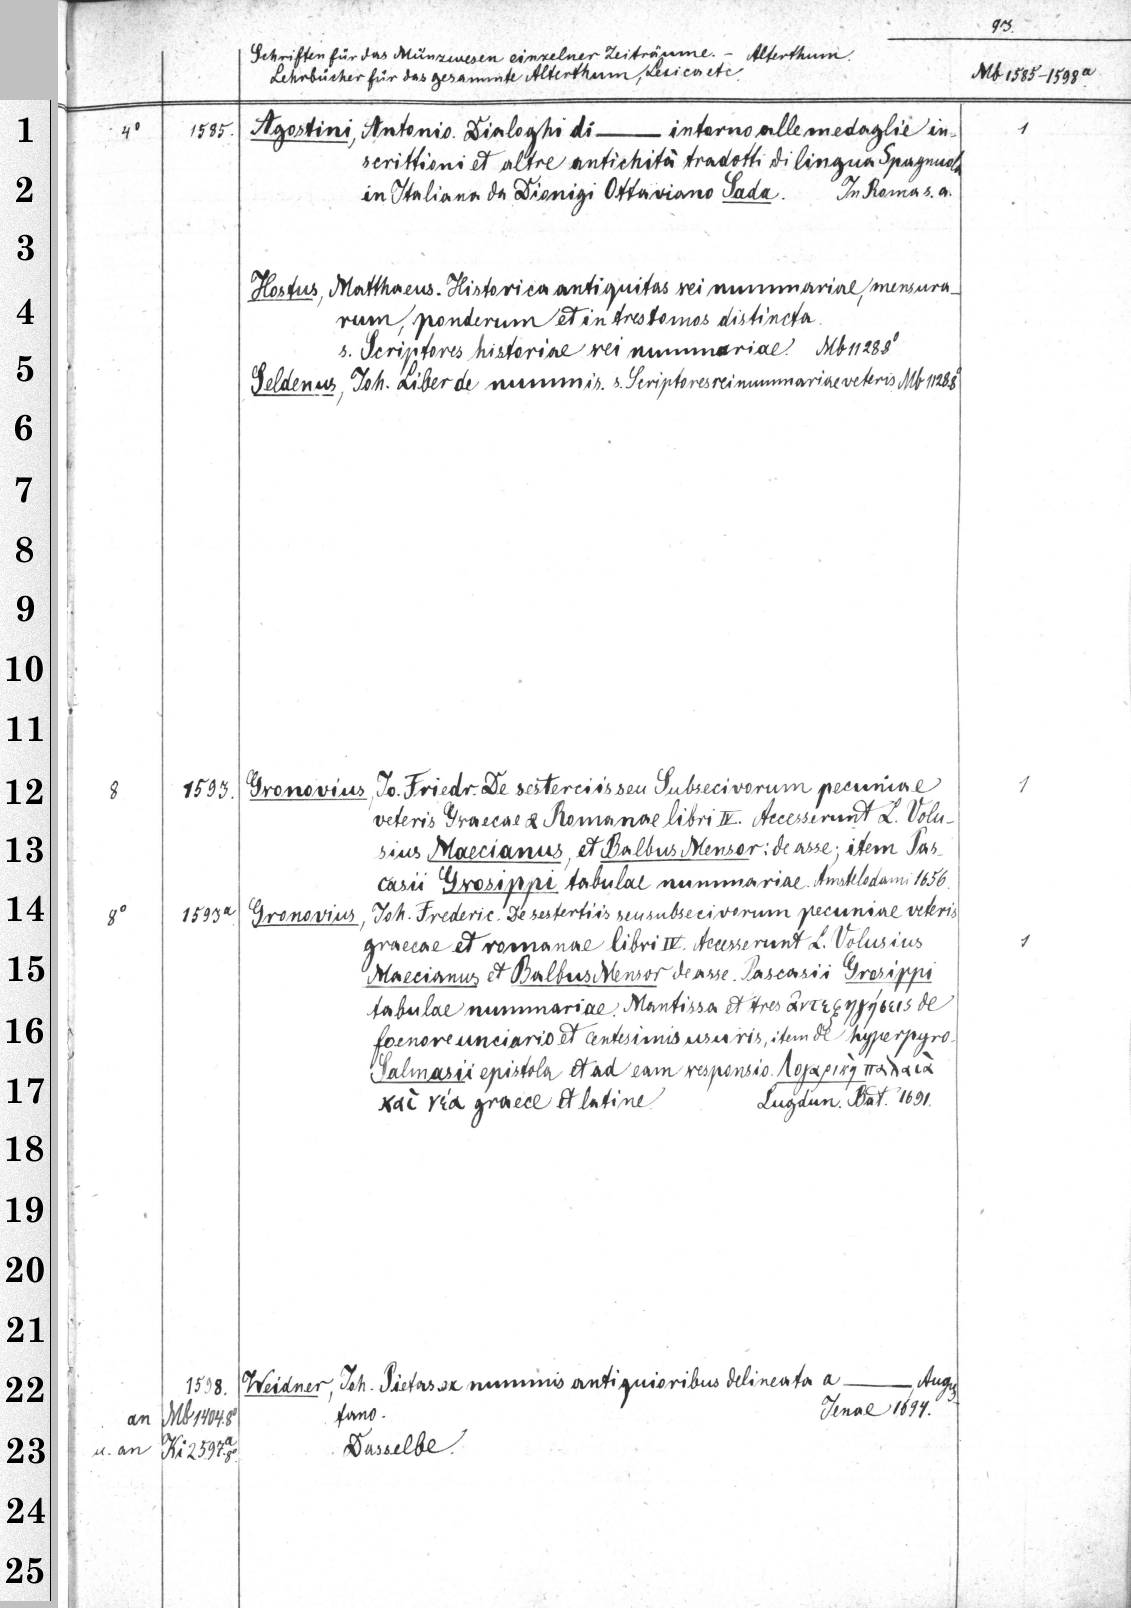 93.
Schriften für das Münzwesen einzelner Zeiträume. – Alterthum.
Lehrbücher für das gesammte Alterthum, Lexica etc.
Mb 1585–1598a
1
2
3
4
5
6
7
8
9
10
11
12
13
14
15
16
17
18
19
20
21
22
23
24
25
4° 1585. Agostini, Antonio. Dialoghi di —— intorno alle medaglie in- 1
scrittioni et altre antichità tradotti di lingua Spagnuola
in Italiana da Dionigi Ottaviano Sada. In Roma s. a.
Hostus, Matthaeus. Historica antiquitas rei nummariae, mensura-
rum, ponderum et in tres tomos distincta.
s. Scriptores historiae rei nummariae. Mb 1128 8°
Seldenus, Joh. Liber de nummis. s. Scriptores rei nummariae veteris Mb 1128 8°
8 1593. Gronovius, Jo. Friedr. De sesterciis seu Subsecivorum pecuniae 1
veteris Graecae & Romanae libri IV. Accesserunt L. Volu-
sius Maecianus, et Balbus Mensor: de asse; item Pas-
casii Grosippi tabulae nummariae. Amstelodami 1656.
8° 1593a Gronovius, Joh. Frederic. De sestertiis seu subsecivorum pecuniae veteris
graecae et romanae libri IV. Accesserunt L. Volusius 1
Maecianus et Balbus Mensor de asse. Pascasii Grosippi
tabulae nummariae. Mantissa et tres ἀντεξηγήσεις de
foenore unciario et centesimis usuris, item de hyperpyro.
Salmasii epistola et ad eam responsio. Λογαρικὴ παλαιὰ
καὶ νέα graece et latine. Lugdun. Bat. 1691.
1598. Weidner, Joh. Pietas ex nummis antiquioribus delineata a ——, Augus-
an Mb 1404.8° tano. Jenae 1694.
u. an Ki 2597.a 8° Dasselbe.